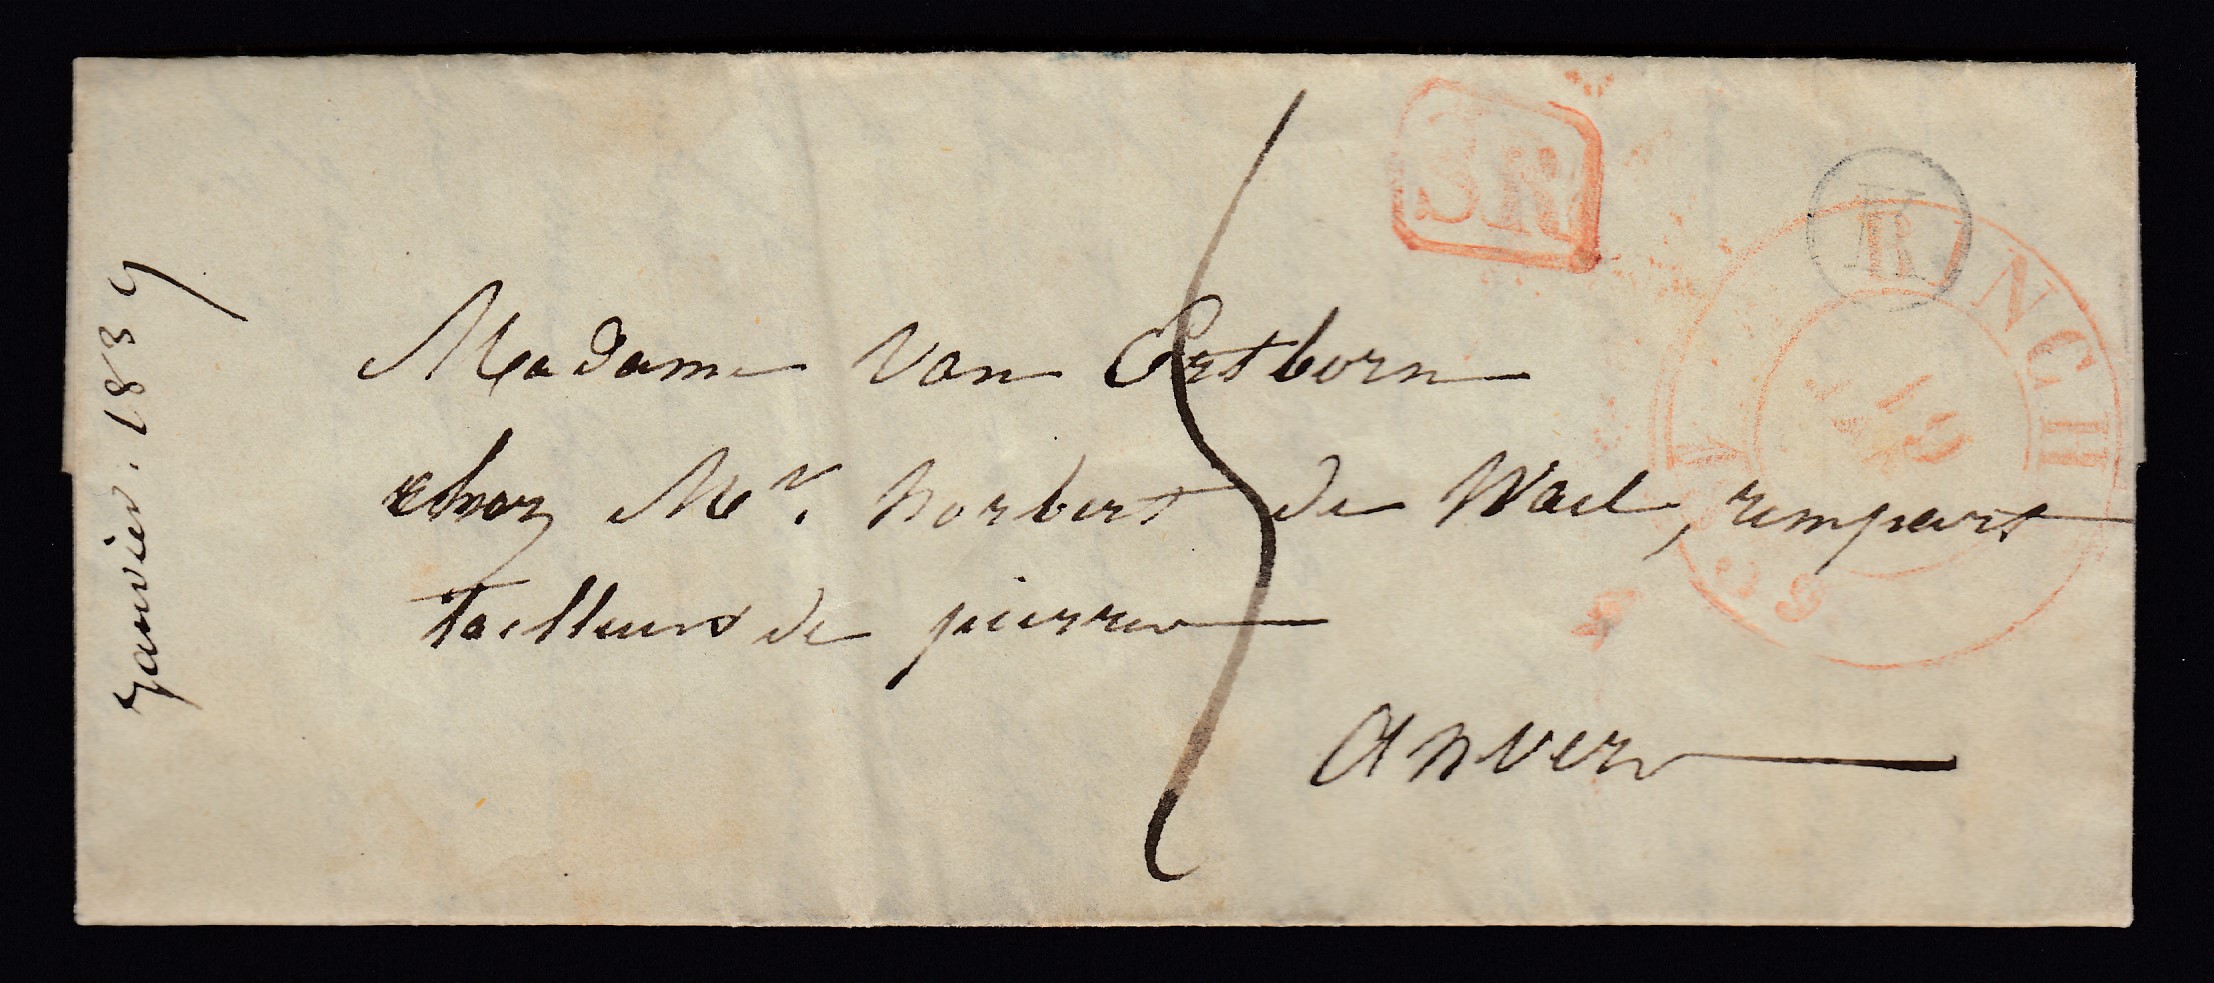 Janvier. 1839
Madame Van Ertborn
chez Mr. Norbert de Wael, rempart
tailleurs de pierre
Anvers
SR
K
19